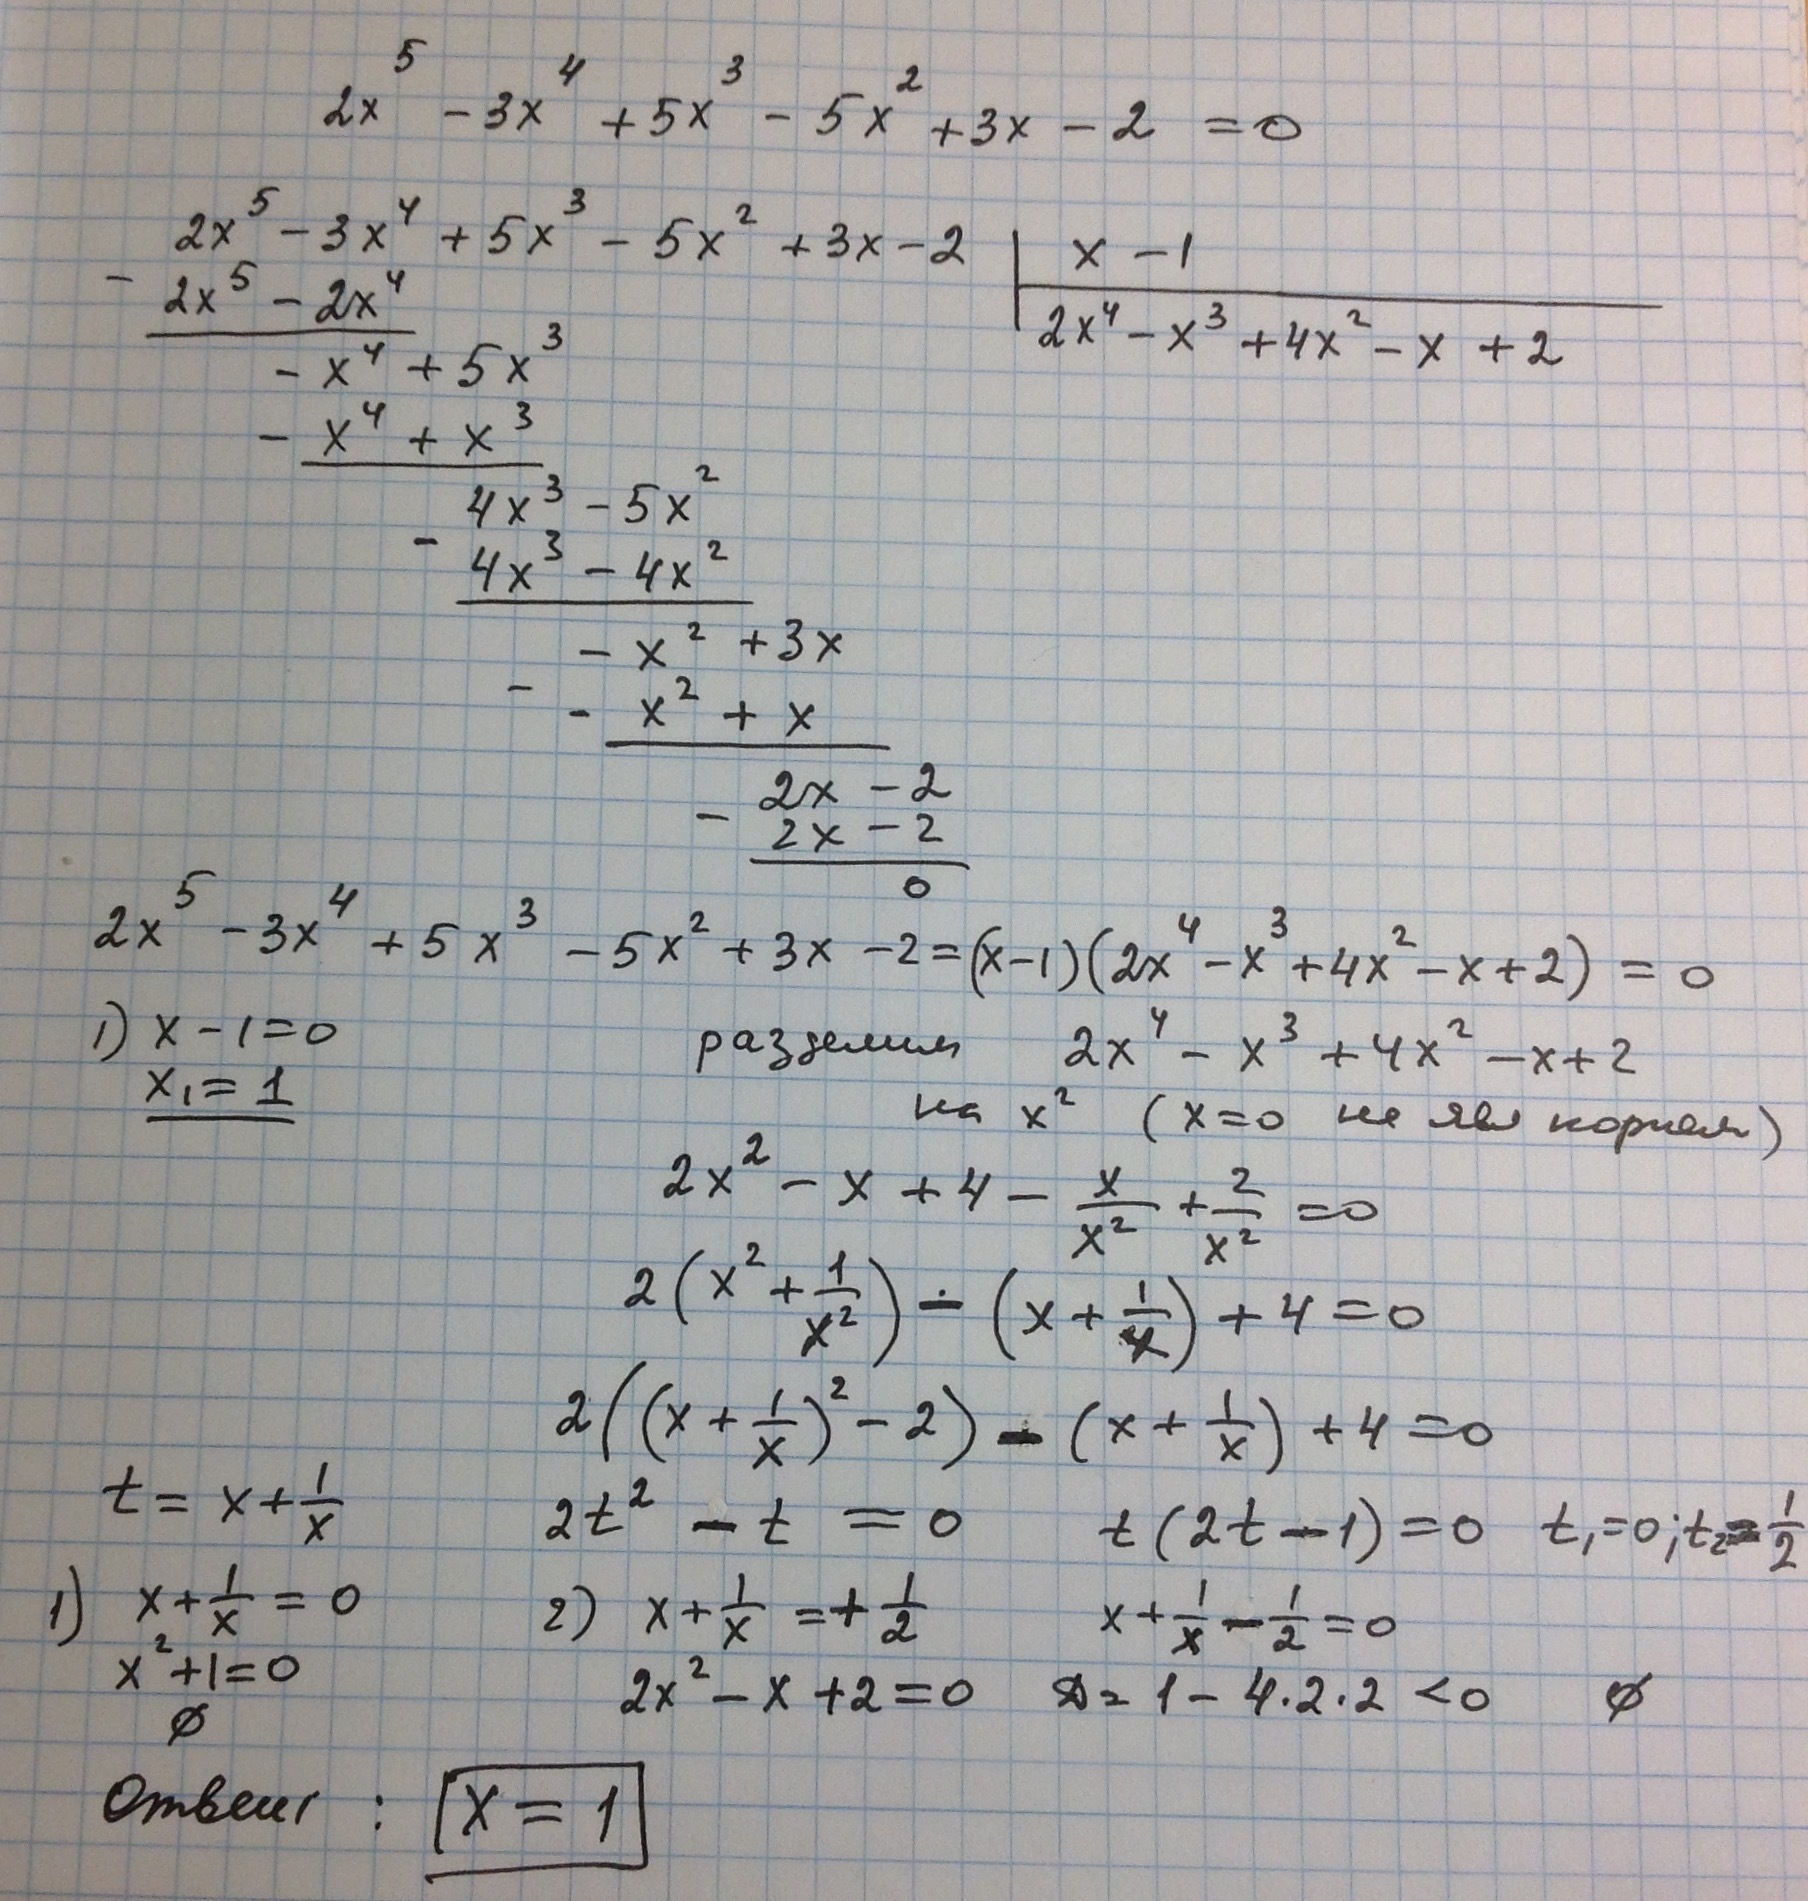 2x⁵ - 3x⁴ + 5x³ - 5x² + 3x - 2 = 0
2x⁵ - 3x⁴ + 5x³ - 5x² + 3x - 2 | x - 1
- 2x⁵ - 2x⁴
2x⁴ - x³ + 4x² - x + 2
- x⁴ + 5x³
- x⁴ + x³
4x³ - 5x²
- 4x³ - 4x²
- x² + 3x
- - x² + x
2x - 2
- 2x - 2
0
2x⁵ - 3x⁴ + 5x³ - 5x² + 3x - 2 = (x-1)(2x⁴ - x³ + 4x² - x + 2) = 0
1) x - 1 = 0
x₁ = 1
разделим 2x⁴ - x³ + 4x² - x + 2
на x² (x=0 не явл корнем)
2x² - x + 4 - x/x² + 2/x² = 0
2(x² + 1/x²) - (x + 1/x) + 4 = 0
2((x + 1/x)² - 2) - (x + 1/x) + 4 = 0
t = x + 1/x 2t² - t = 0 t(2t - 1) = 0 t₁ = 0; t₂ = 1/2
1) x + 1/x = 0
x² + 1 = 0
∅
2) x + 1/x = + 1/2 x + 1/x - 1/2 = 0
2x² - x + 2 = 0 D = 1 - 4·2·2 < 0 ∅
Ответ : x = 1